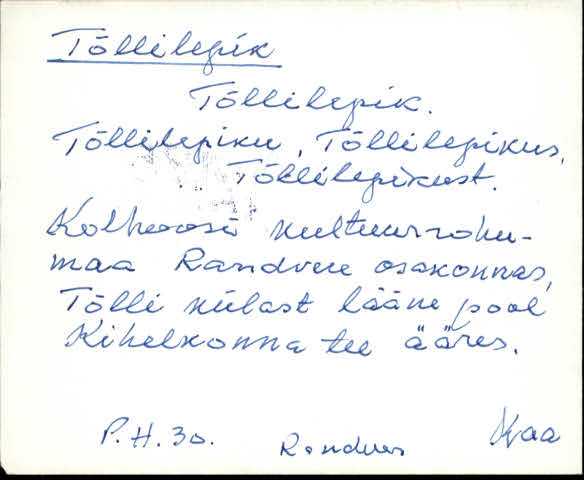 Tõllilepik
Tõllilepik.
Tõllilepiku, Tõllilepikus,
Tõllilepikust.
Kolhoosi kultuurrohu-
maa Randvere osakonnas,
Tõlli külast lääne pool
Kihelkonna tee ääres.
P.H.30. Randvere Kaa